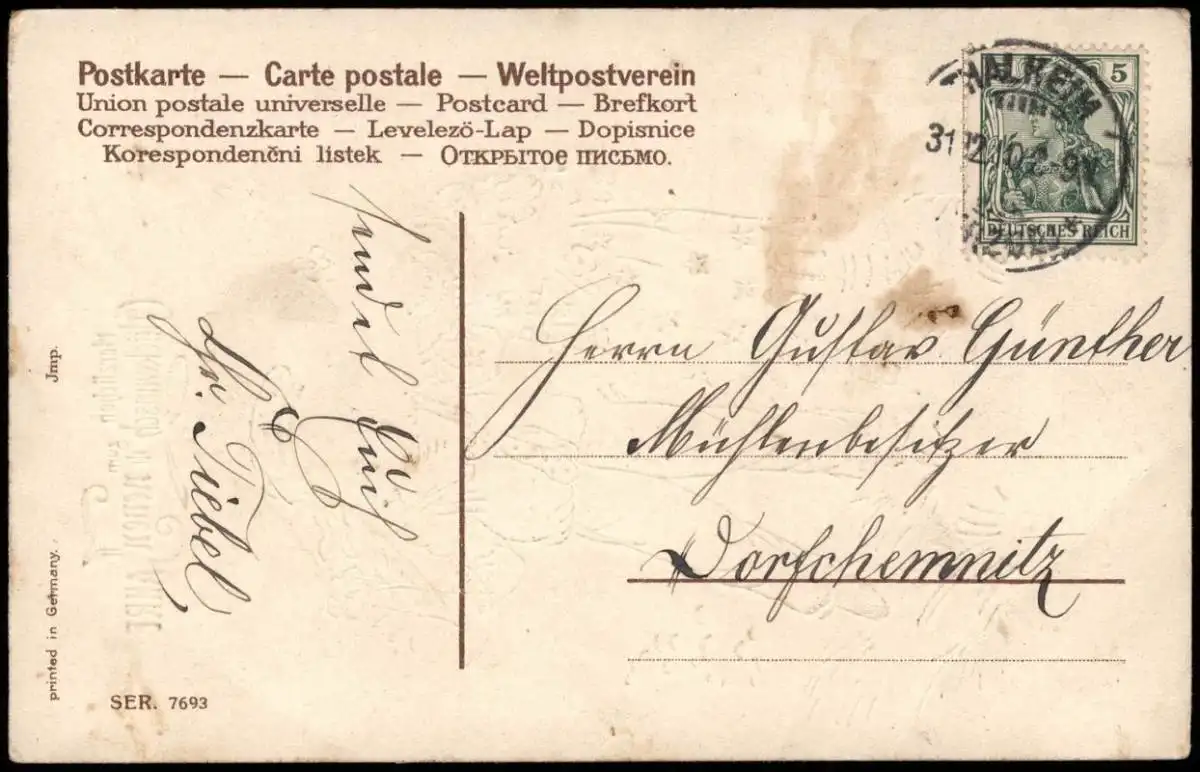 Postkarte — Carte postale — Weltpostverein
Union postale universelle — Postcard — Brefkort
Correspondenzkarte — Levelező-Lap — Dopisnice
Korespondenčni listek — Открытое письмо.
5
DEUTSCHES REICH
THALHEIM
31 12
sendet Euch
Fr. Tiebel
Herrn Gustav Günther
Mühlenbesitzer
Dorfchemnitz
Jmp.
printed in Germany.
SER. 7693